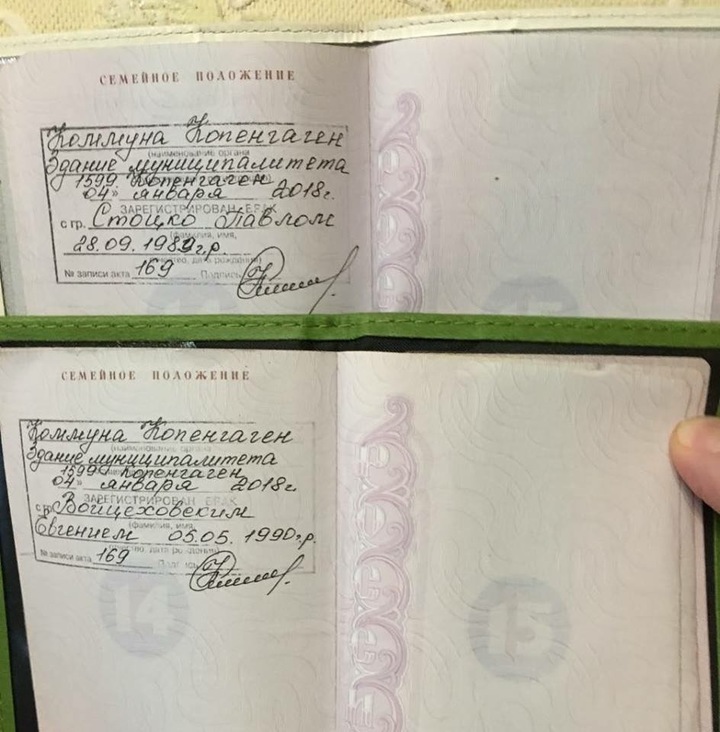 СЕМЕЙНОЕ ПОЛОЖЕНИЕ
Коммуна Копенгаген
(наименование органа
Здание муниципалитета
1599. Копенгаген
04» января 2018г.
ЗАРЕГИСТРИРОВАН БРАК
с гр. Стоцко Павлом
(фамилия, имя,
28.09.1989г.р
дата рождения)
№ записи акта 169 Подпись
СЕМЕЙНОЕ ПОЛОЖЕНИЕ
Коммуна Копенгаген
Здание муниципалитета
1599 Копенгаген
04» января 2018г
ЗАРЕГИСТРИРОВАН БРАК
с гр. Войцеховским
(фамилия, имя,
Евгением 05.05.1990г.р.
дата рождения)
№ записи акта 169
14
15